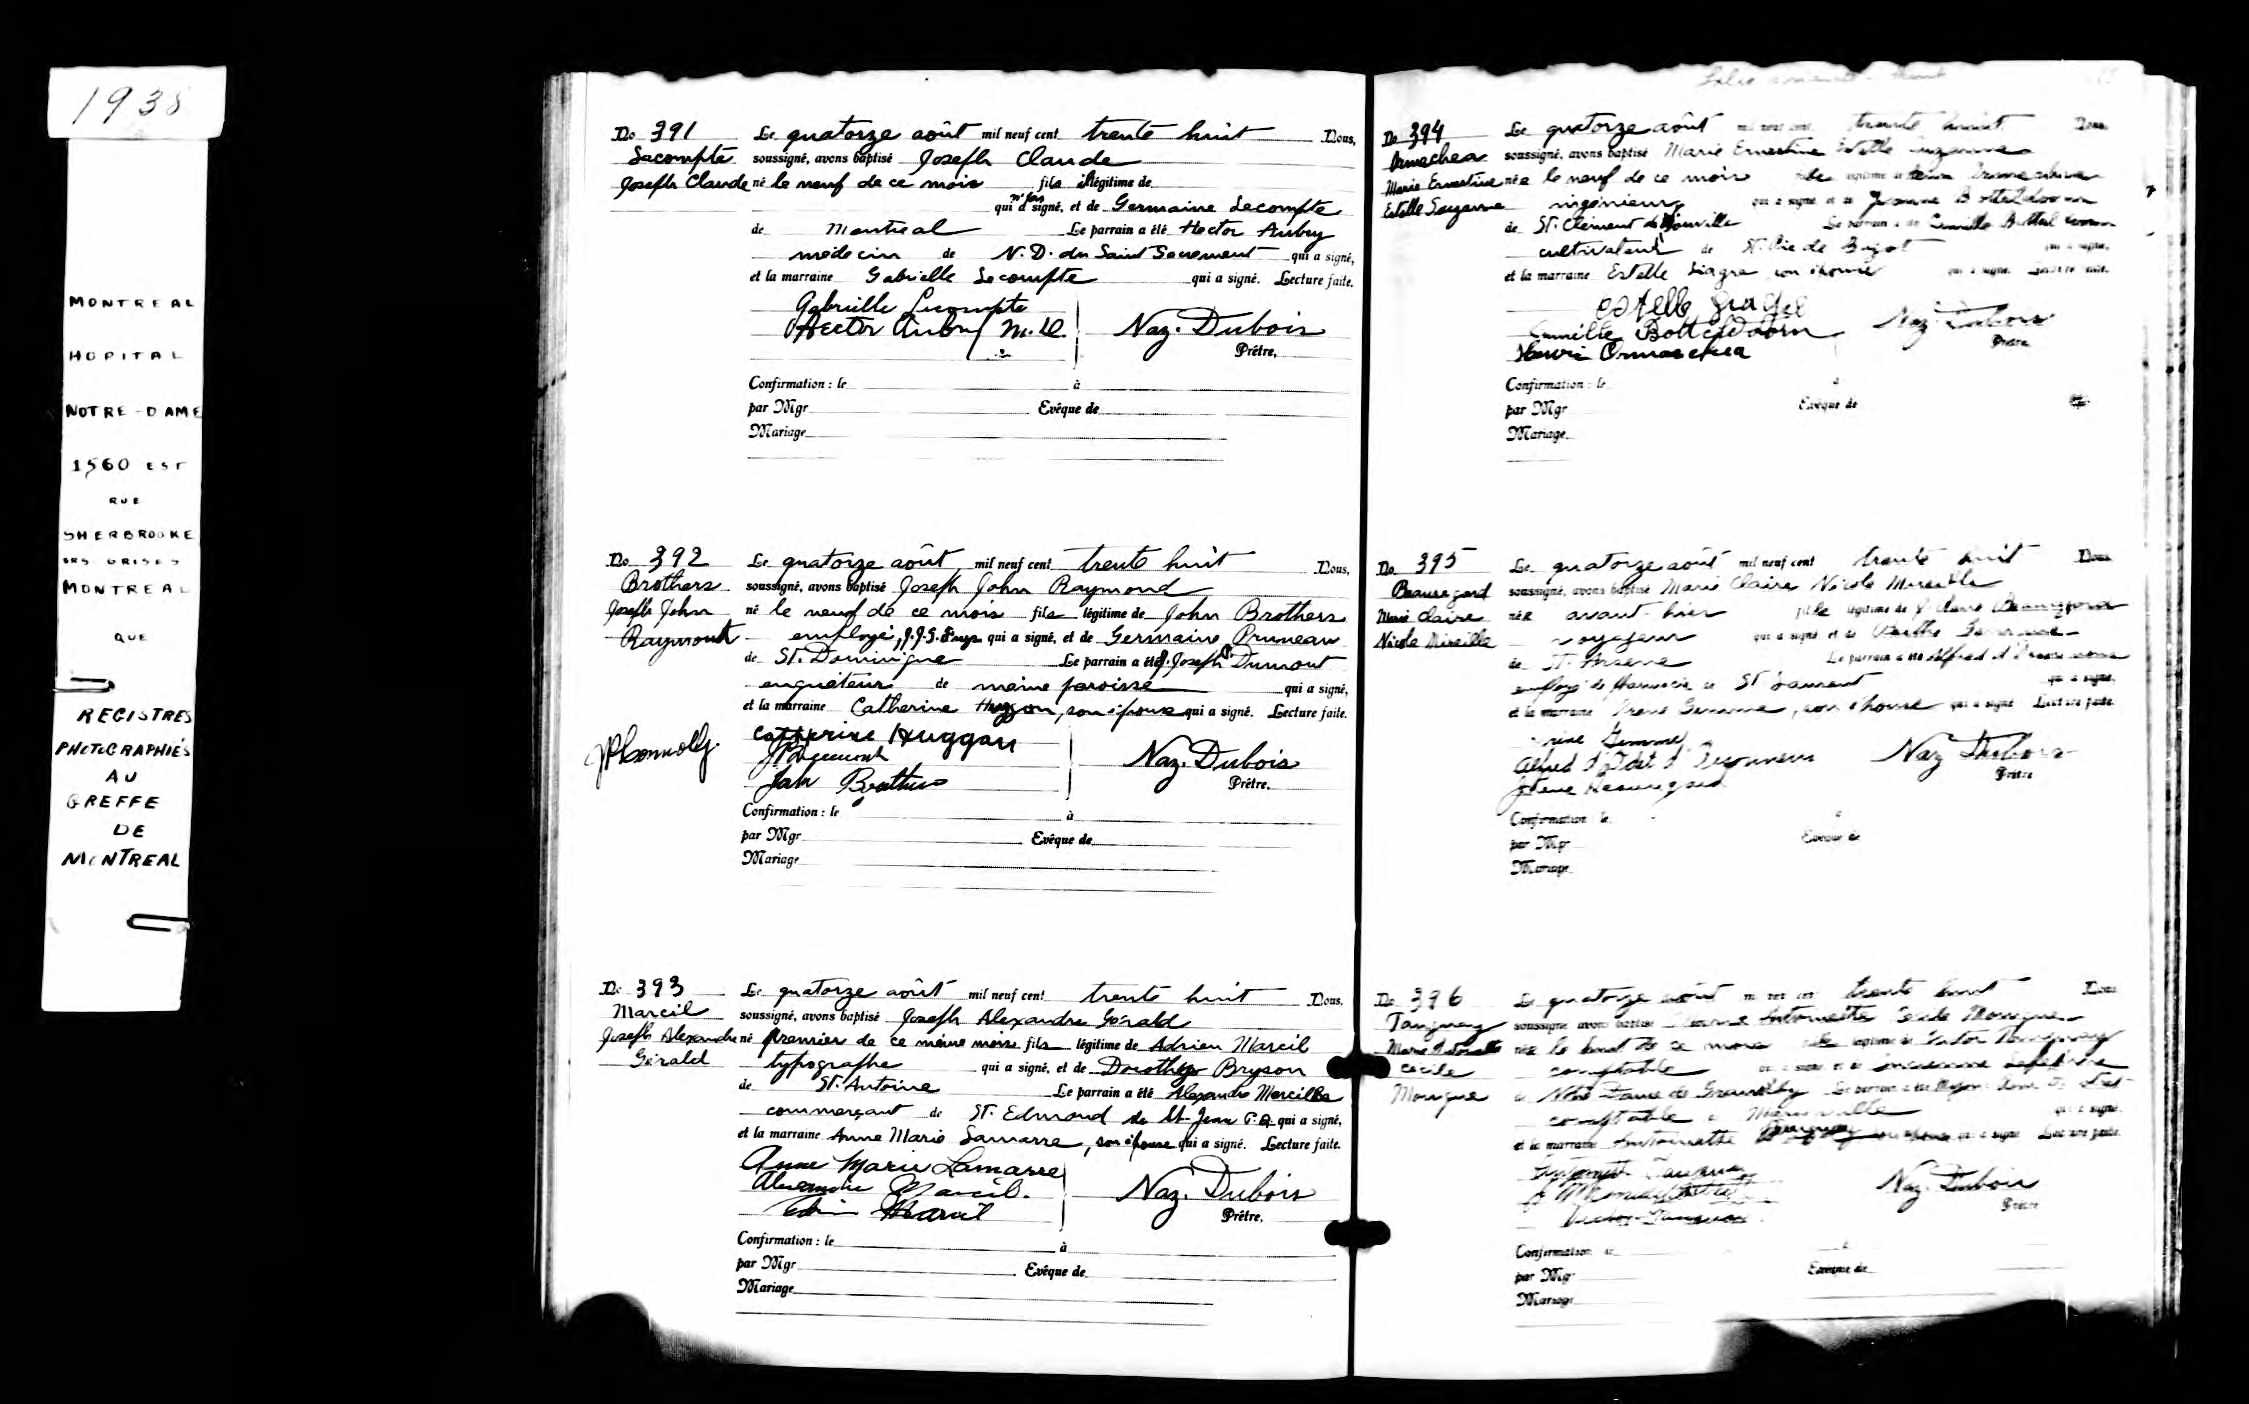 1938
MONTREAL
HOPITAL
NOTRE-DAME
1560 EST
RUE
SHERBROOKE
SRS GRISES
MONTREAL
QUE
REGISTRES
PHOTOGRAPHIÉS
AU
GREFFE
DE
MONTREAL
No 391 Le quatorze août mil neuf cent trente huit Nous,
Lecompte soussigné, avons baptisé Joseph Claude
Joseph Claude né le neuf de ce mois fils illégitime de
qui n'a pas signé, et de Germaine Lecompte
de Montréal Le parrain a été Hector Aubry
médecin de N.D. du Saint Sacrement qui a signé,
et la marraine Gabrielle Lecompte qui a signé. Lecture faite.
Gabrielle Lecompte
Hector Aubry M.D. Naz. Dubois
Prêtre,
Confirmation : le à
par Mgr Evêque de
Mariage
No 392 Le quatorze août, mil neuf cent trente huit Nous,
Brothers soussigné, avons baptisé Joseph John Raymond
Joseph John né le neuf de ce mois fils légitime de John Brothers
Raymond employé, qui a signé, et de Germaine Pruneau
de St. Dominique Le parrain a été J. Joseph P. Dumont
enquêteur de même paroisse qui a signé,
et la marraine Catherine Huggan, son épouse qui a signé. Lecture faite.
JPConnolly. Catherine Huggan
Naz. Dubois
John Brothers Prêtre,
Confirmation : le à
par Mgr Evêque de
Mariage
No 393 Le quatorze août mil neuf cent trente huit Nous,
Marcil soussigné, avons baptisé Joseph Alexandre Gérald
Joseph Alexandre né premier de ce même mois fils légitime de Adrien Marcil
Gérald typographe qui a signé, et de Dorothy Bryson
de St. Antoine Le parrain a été Alexandre Marcil
commerçant de St. Edmond de St. Jean P.Q. qui a signé,
et la marraine Anne Marie Lamarre, son épouse qui a signé. Lecture faite.
Anne Marie Lamarre
Alexandre Marcil. Naz. Dubois
Marcil Prêtre,
Confirmation : le à
par Mgr Evêque de
Mariage
No 394 Le quatorze août mil neuf cent trente huit Nous,
Ormachea soussigné, avons baptisé Marie Ernestine Estelle Suzanne
Marie Ernestine née le neuf de ce mois fille légitime de Henri Ormachea
Estelle Suzanne ingénieur qui a signé et de Botteldoorn
de St. Clément de Viauville Le parrain a été Camille Botteldoorn
cultivateur de St. Pie de Bagot qui a signé,
et la marraine Estelle son épouse qui a signé. Lecture faite.
Estelle
Camille Botteldoorn Naz. Dubois
Henri Ormachea Prêtre
Confirmation : le à
par Mgr Evêque de
Mariage
No 395 Le quatorze août mil neuf cent trente huit Nous
Beauregard soussigné, avons baptisé Marie Claire Nicole Mireille
Marie Claire née avant-hier fille légitime de Beauregard
Nicole Mireille voyageur qui a signé et de Berthe
de St. Arsène Le parrain a été Alfred
employé de pharmacie de St Laurent qui a signé,
et la marraine Irène Gemme, son épouse qui a signé Lecture faite.
Irène Gemme
Alfred Naz Dubois
Beauregard Prêtre
Confirmation le à
par Mgr Evêque de
Mariage
No 396 Le quatorze août mil neuf cent trente huit Nous
Tanguay soussigné avons baptisé Marie Antoinette Cécile Monique
Marie Antoinette née le huit de ce mois fille légitime de Victor Tanguay
Cécile comptable qui a signé et de Lefebvre
Monique de Notre Dame de Granby Le parrain a été
comptable de Marieville qui a signé
et la marraine Antoinette Tanguay son épouse qui a signé Lecture faite.
Tanguay
Naz. Dubois
Victor Tanguay Prêtre
Confirmation le à
par Mgr Evêque de
Mariage